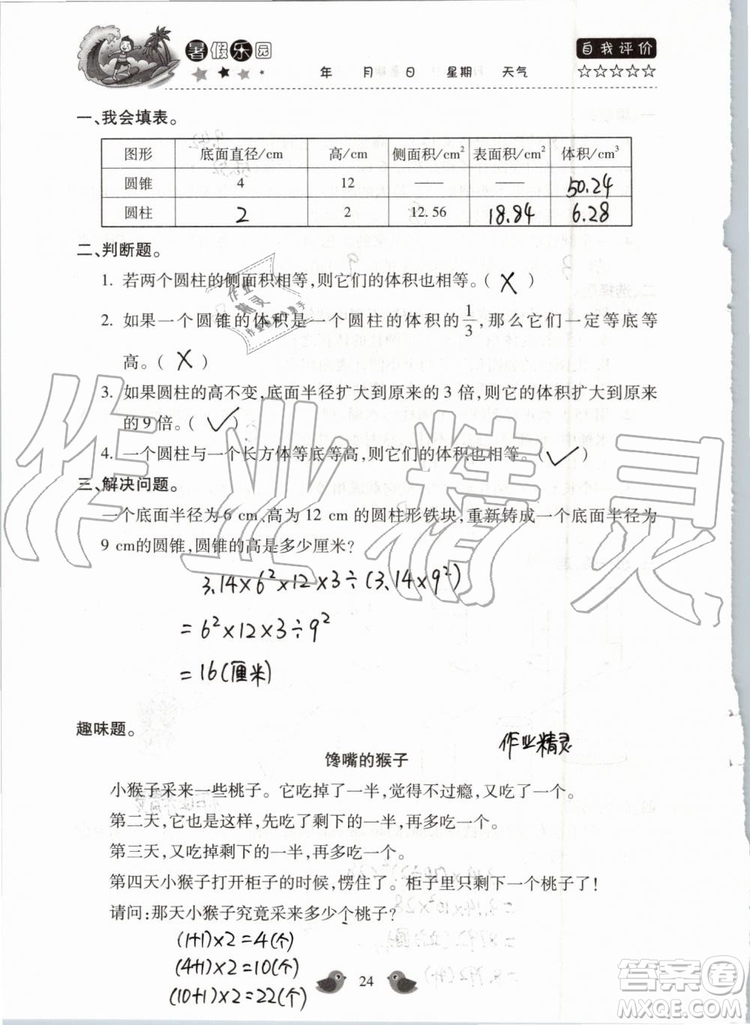 暑假乐园
自我评价
☆☆☆☆☆
年 月 日 星期 天气
一、我会填表。
图形 底面直径/cm 高/cm 侧面积/cm² 表面积/cm² 体积/cm³
圆锥 4 12 —— —— 50.24
圆柱 2 2 12.56 18.84 6.28
二、判断题。
1. 若两个圆柱的侧面积相等，则它们的体积也相等。（ X ）
2. 如果一个圆锥的体积是一个圆柱的体积的1/3，那么它们一定等底等
高。（ X ）
3. 如果圆柱的高不变，底面半径扩大到原来的 3 倍，则它的体积扩大到原来
的 9 倍。（ ✓ ）
4. 一个圆柱与一个长方体等底等高，则它们的体积也相等。（ ✓ ）
三、解决问题。
一个底面半径为 6 cm、高为 12 cm 的圆柱形铁块，重新铸成一个底面半径为
9 cm的圆锥，圆锥的高是多少厘米？
3.14×6²×12×3÷(3.14×9²)
=6²×12×3÷9²
=16(厘米)
趣味题。
作业精灵
馋嘴的猴子
小猴子采来一些桃子。它吃掉了一半，觉得不过瘾，又多吃了一个。
第二天，它也是这样，先吃了剩下的一半，再多吃一个。
第三天，又吃了剩下的一半，再多吃一个。
第四天小猴子打开柜子的时候，愣住了。柜子里只剩下一个桃子了！
请问：那天小猴子究竟采来多少个桃子？
(1+1)×2=4(个)
(4+1)×2=10(个)
(10+1)×2=22(个)
24
作业精灵
答案圈
MXQE.COM